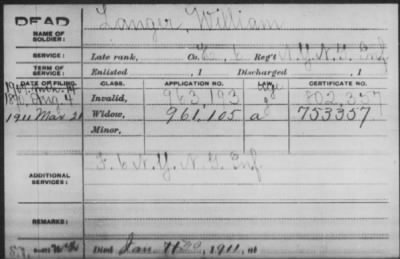 DEAD
NAME OF SOLDIER: Langer, William
SERVICE: Late rank, Co. Reg't N.Y. Inf
TERM OF SERVICE: Enlisted , 1 Discharged , 1
DATE OF FILING. CLASS. APPLICATION NO. CERTIFICATE NO.
Aug 4 Invalid, 963,193 802,357
1911 Mar 21 Widow, 961,105 a 753357
Minor,
ADDITIONAL SERVICES: N.Y. Inf.
REMARKS:
Died Jan. , 1911, at